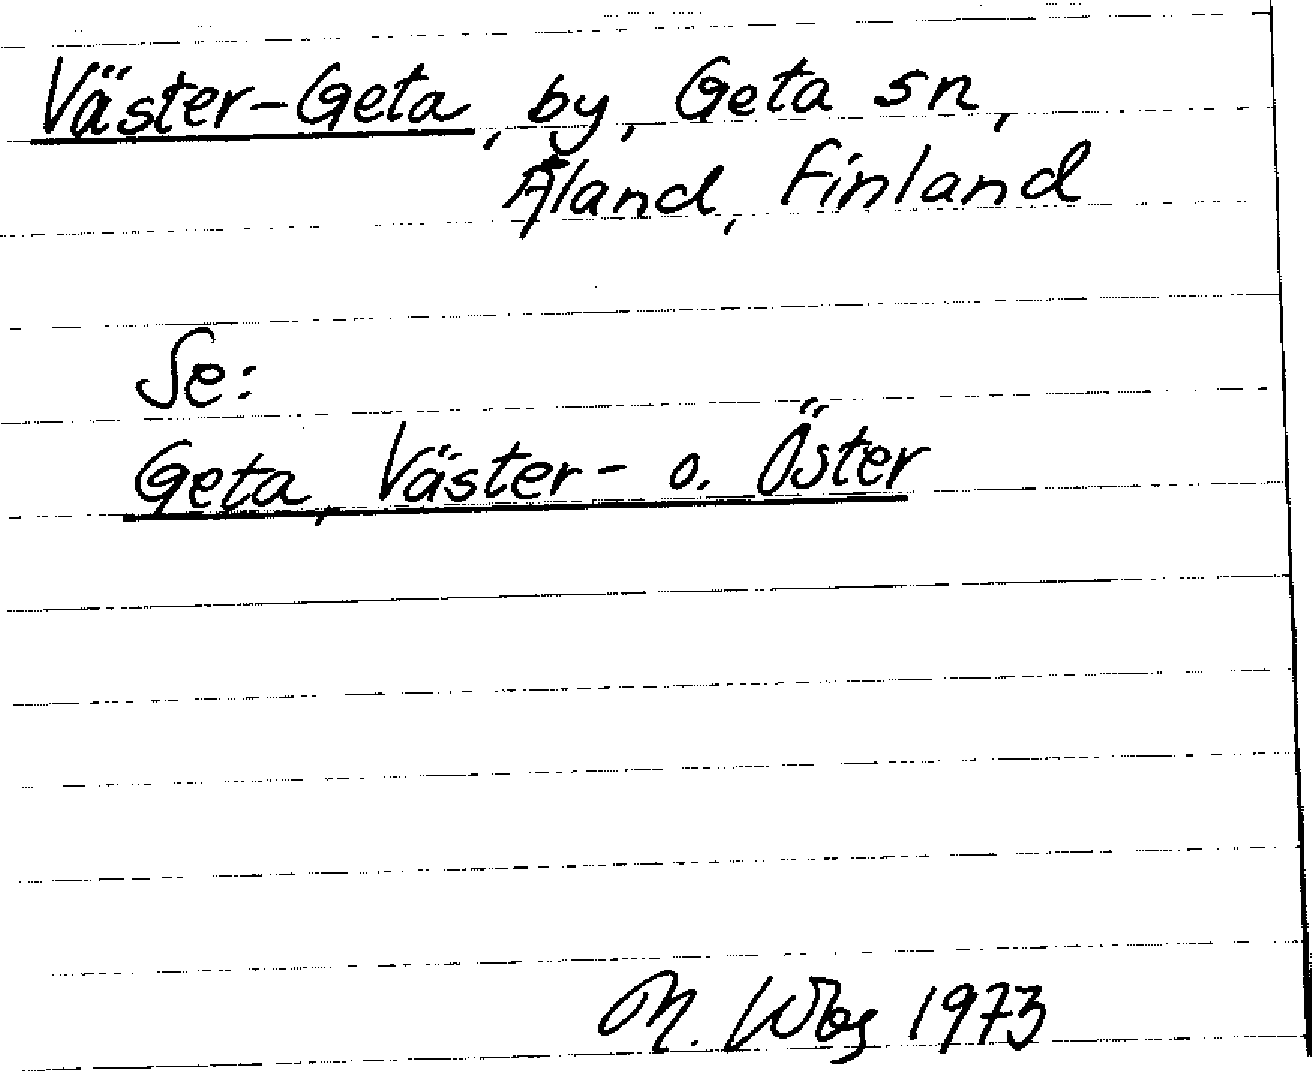 Väster-Geta, by, Geta sn,
Åland, Finland
Se:
Geta, Väster- o. Öster
M. 1973